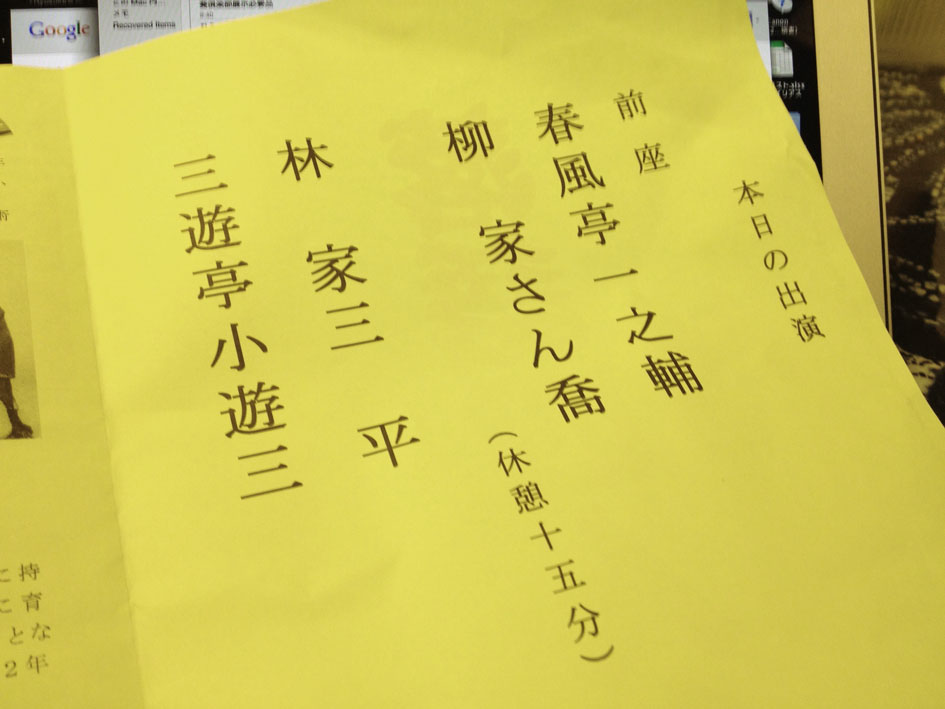 本日の出演
前座
春風亭一之輔
柳家さん喬
(休憩十五分)
林家三平
三遊亭小遊三
術
に持
に育
とな
2年
Google
メモ
Recovered Items